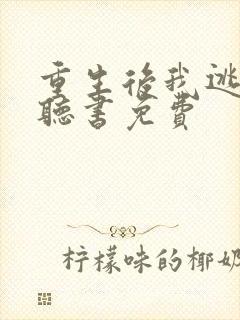 重生后我逃
聽書免费
柠檬味的椰奶